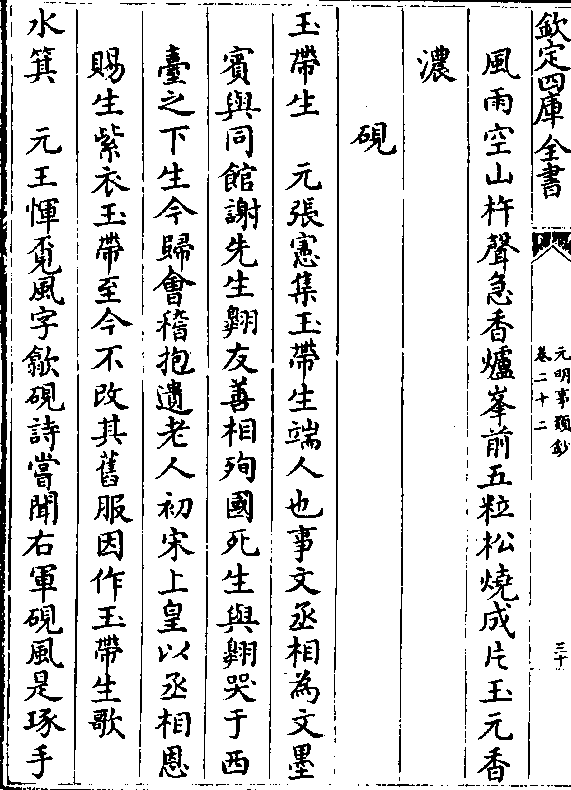 欽定四庫全書
元明事類鈔
卷二十二
三十
風雨空山杵聲急香爐峯前五粒松燒成片玉元香
濃
硯
玉帶生　元張憲集玉帶生端人也事文丞相為文墨
賓與同館謝先生翱友善相殉國死生與翱哭于西
臺之下生今歸會稽抱遺老人初宋上皇以丞相恩
賜生紫衣玉帶至今不改其舊服因作玉帶生歌
水箕　元王惲覔風字歙硯詩嘗聞右軍硯風是琢手